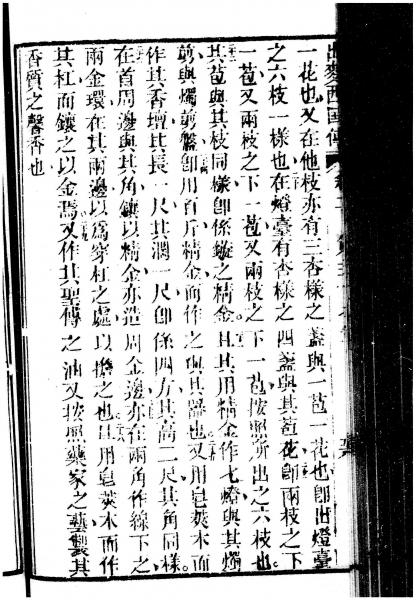 出麥西國傳
一花也又在他枝亦有三杏樣之盞與一苞一花也卽出燈臺
之六枝一樣也在燈臺有杏樣之四盞與其苞花卽兩枝之下
一苞又兩枝之下一苞又兩枝之下一苞按照所出之六枝也
其苞與其枝同樣卽係鏇之精金且其用精金作七燈與其燭
剪與燭剪盤卽用百斤精金而作之與其器也又用皂莢木而
作其香壇比長一尺其濶一尺卽係四方其高二尺其角同樣
在首周邊與其角鑲以精金亦造周金邊亦在兩角作線下之
兩金環在其兩邊以爲穿杠之處以擔之也且用皂莢木而作
其杠而鑲之以金焉又作其聖傅之油又按照藥家之藝製其
香質之馨香也